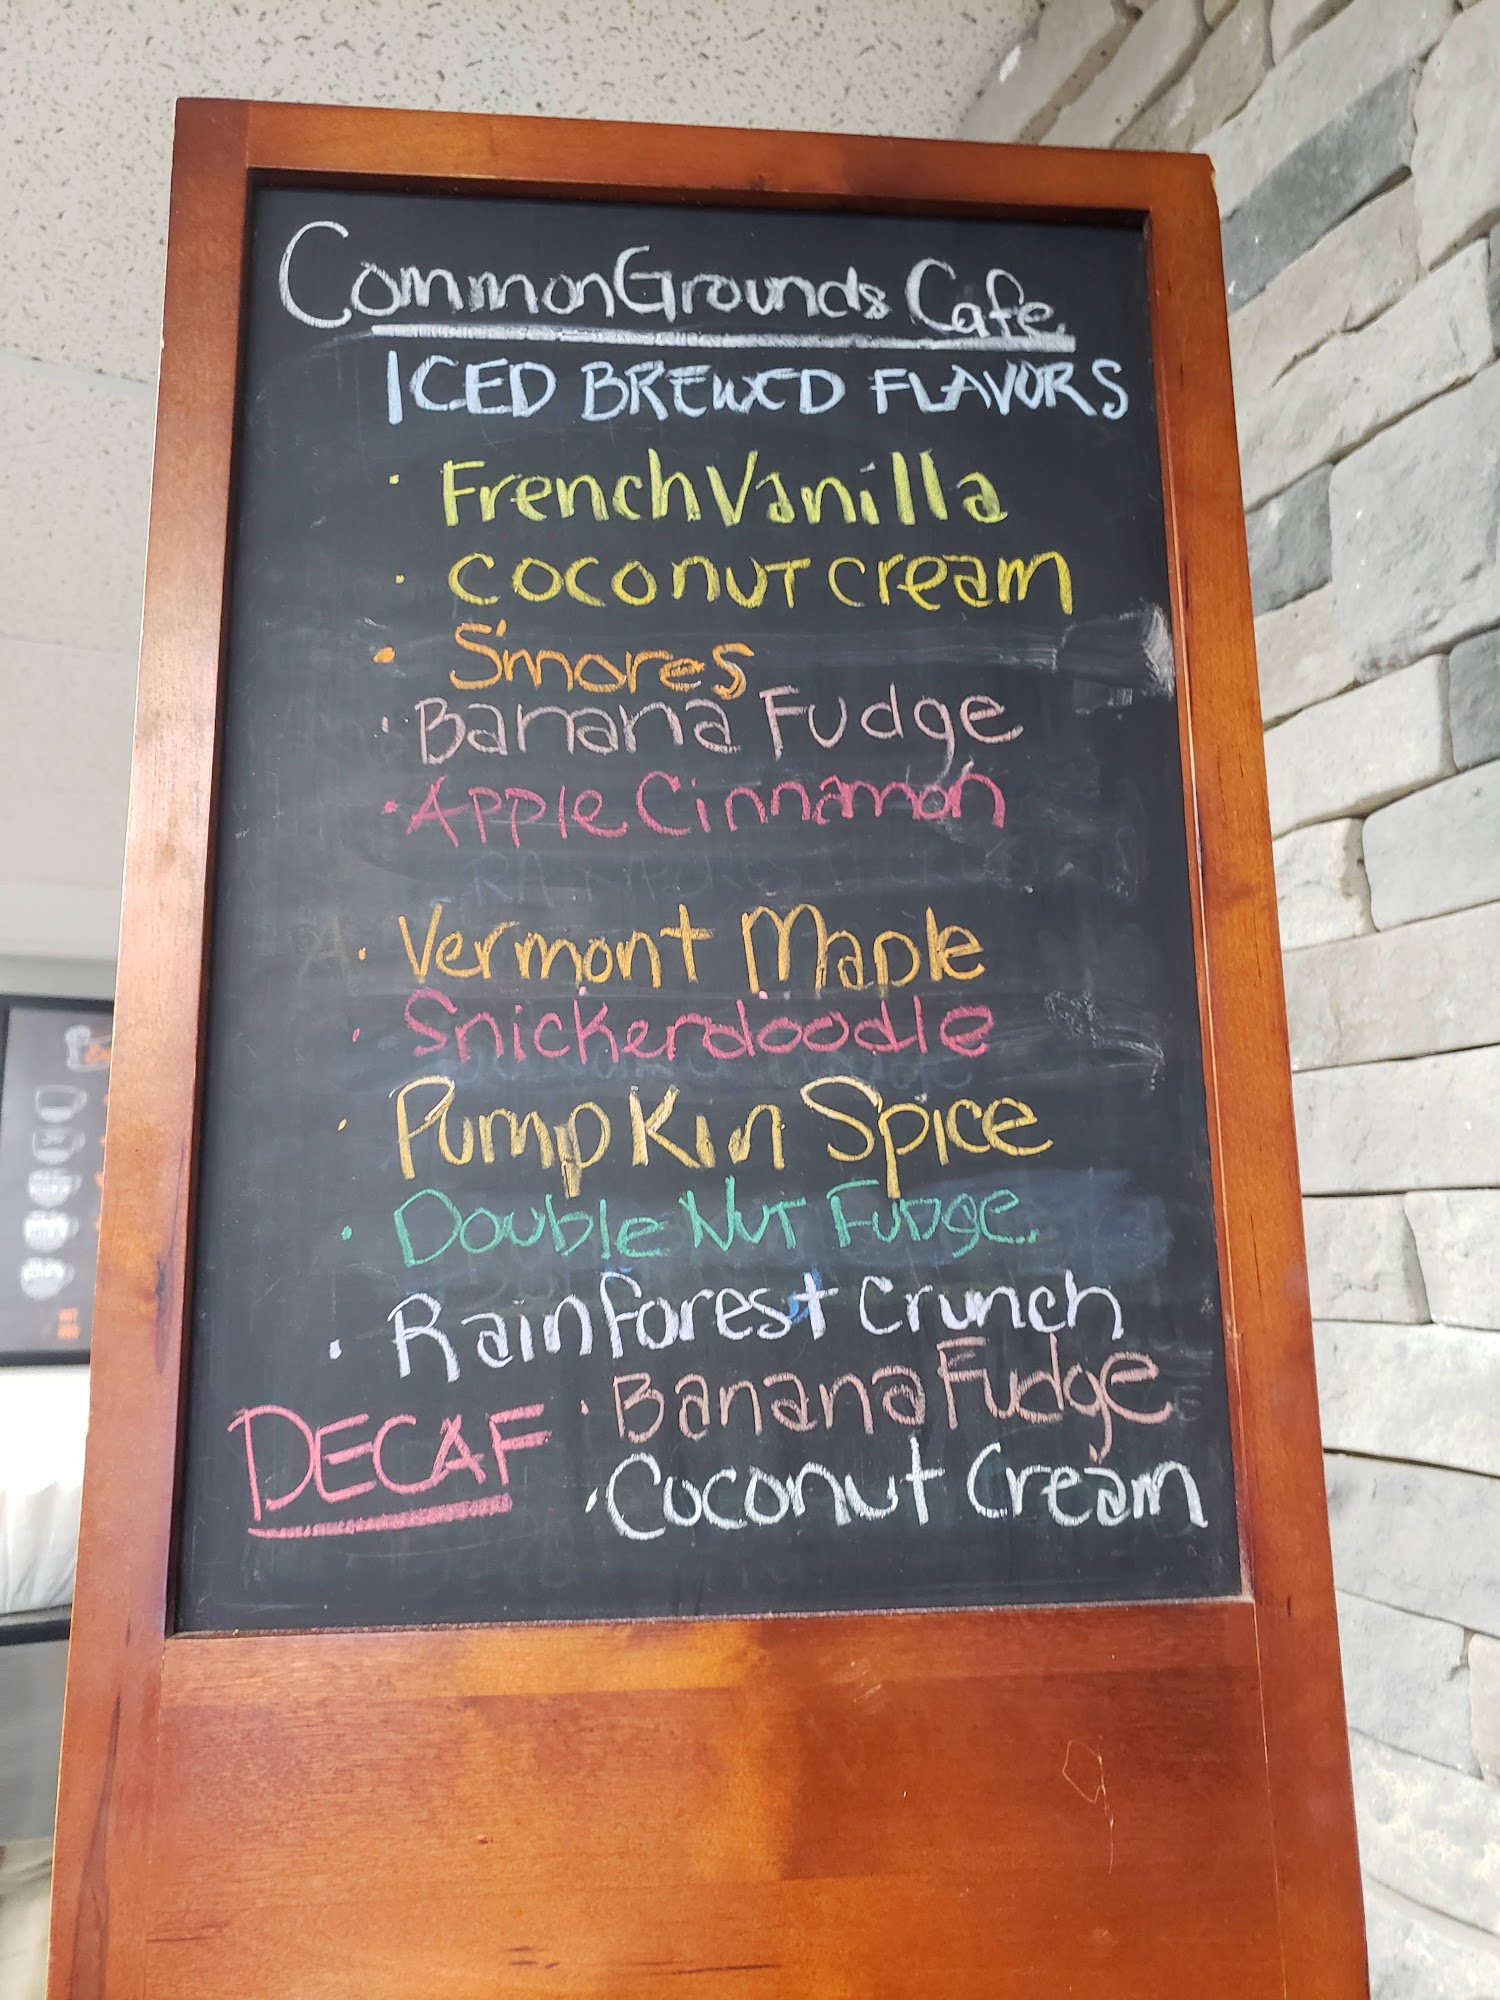 CommonGrounds Cafe
ICED BREWED FLAVORS
· French Vanilla
· coconut cream
· S'mores
· Banana Fudge
· Apple Cinnamon
· Vermont Maple
· Snickerdoodle
· Pumpkin Spice
· Double Nut Fudge
· Rainforest Crunch
DECAF · Banana Fudge
· Coconut Cream